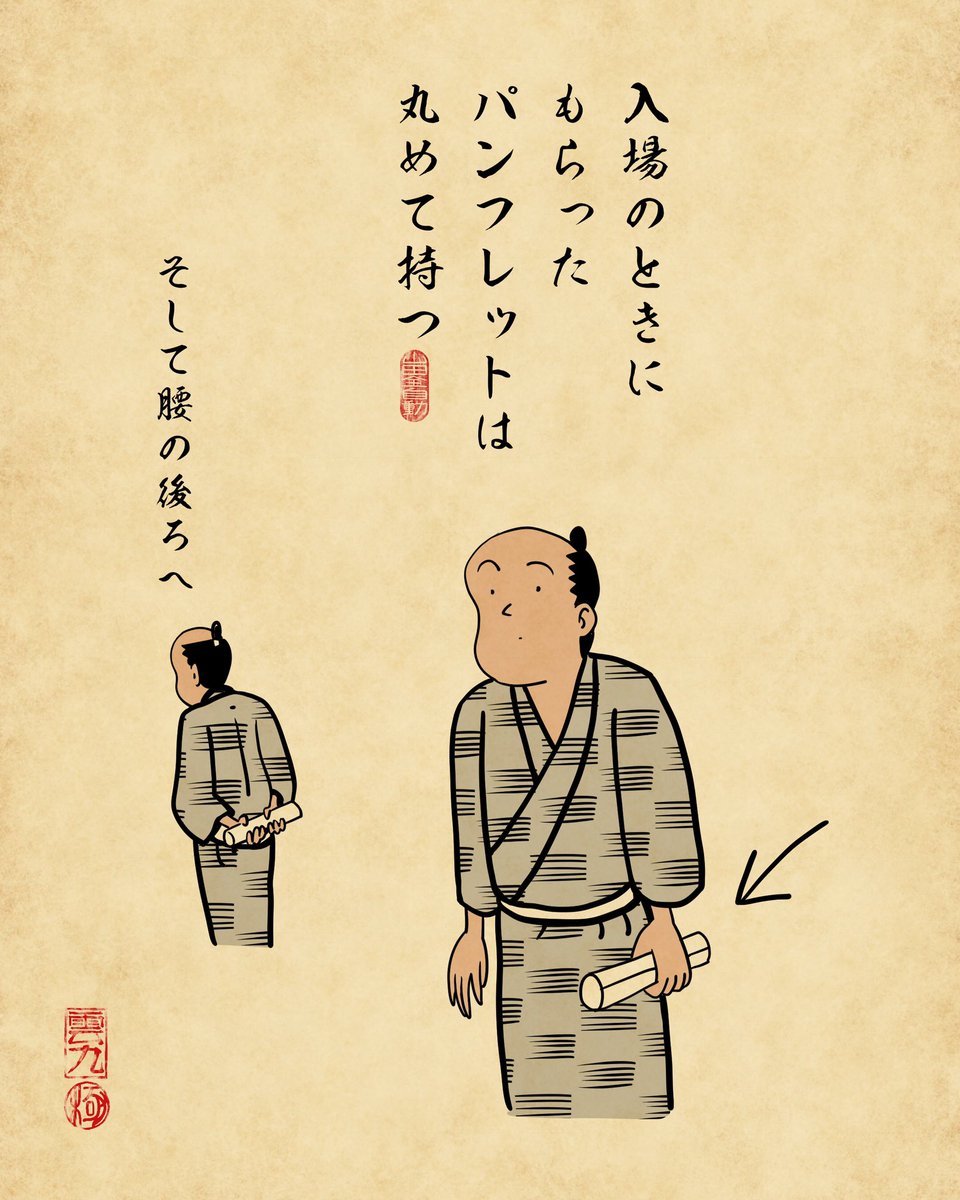 入場のときに
もらった
パンフレットは
丸めて持つ
そして腰の後ろへ